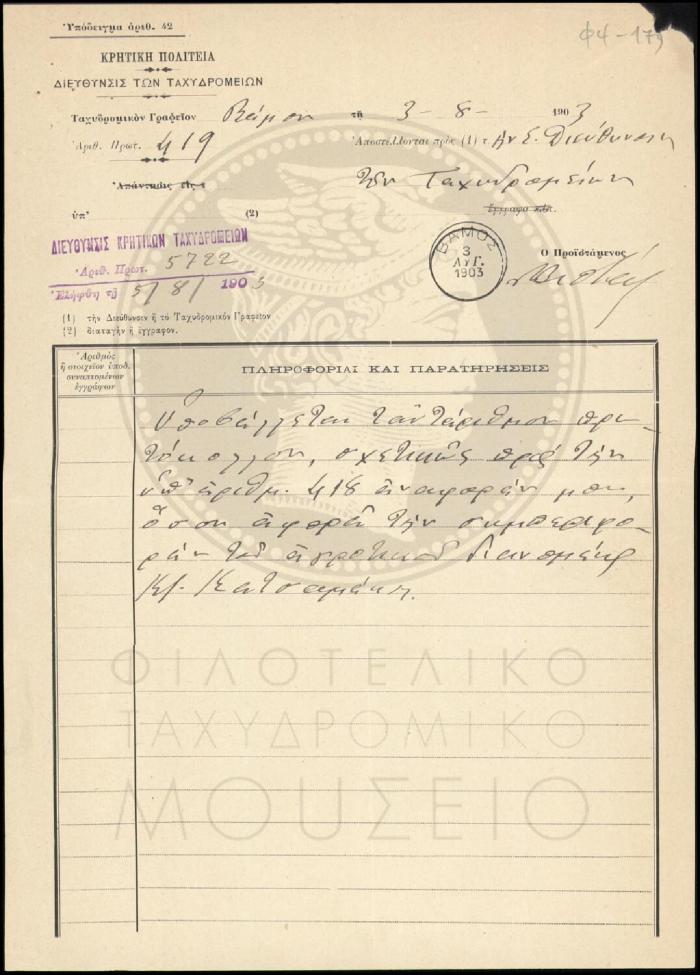 Ὑπόδειγμα ἀριθ. 42
Φ4-179
ΚΡΗΤΙΚΗ ΠΟΛΙΤΕΙΑ
ΔΙΕΥΘΥΝΣΙΣ ΤΩΝ ΤΑΧΥΔΡΟΜΕΙΩΝ
Ταχυδρομικὸν Γραφεῖον Βάμου τῇ 3-8-1903
Ἀριθ. Πρωτ. 419
Ἀποστέλλονται πρὸς (1) τ Διεύθυνσιν
τῶν Ταχυδρομείων
Ἀπάντησις εἰς
ὑπ' (2)
ΔΙΕΥΘΥΝΣΙΣ ΚΡΗΤΙΚΩΝ ΤΑΧΥΔΡΟΜΕΙΩΝ
Ἀριθ. Πρωτ. 5722
Ἐλήφθη τῇ 5/8/1903
ΒΑΜΟΣ
3
ΑΥΓ.
1903
Ο Προϊστάμενος
(1) τὴν Διεύθυνσιν ἢ τὸ Ταχυδρομικὸν Γραφεῖον
(2) διαταγὴν ἢ ἔγγραφον.
Ἀριθμὸς
ἢ στοιχεῖον ὑποδ.
συναπτομένων
ἐγγράφων
ΠΛΗΡΟΦΟΡΙΑΙ ΚΑΙ ΠΑΡΑΤΗΡΗΣΕΙΣ
Ὑποβάλλεται ταὐτάριθμον πρω-
τόκολλον, σχετικῶς πρὸς τὴν
ὑπ' ἀριθμ. 418 ἀναφοράν μου,
ὅσον ἀφορᾶ τὴν συμπεριφο-
ρὰν τοῦ ἀγροτικοῦ διανομέως
Κατσαμάκη.
ΦΙΛΟΤΕΛΙΚΟ
ΤΑΧΥΔΡΟΜΙΚΟ
ΜΟΥΣΕΙΟ